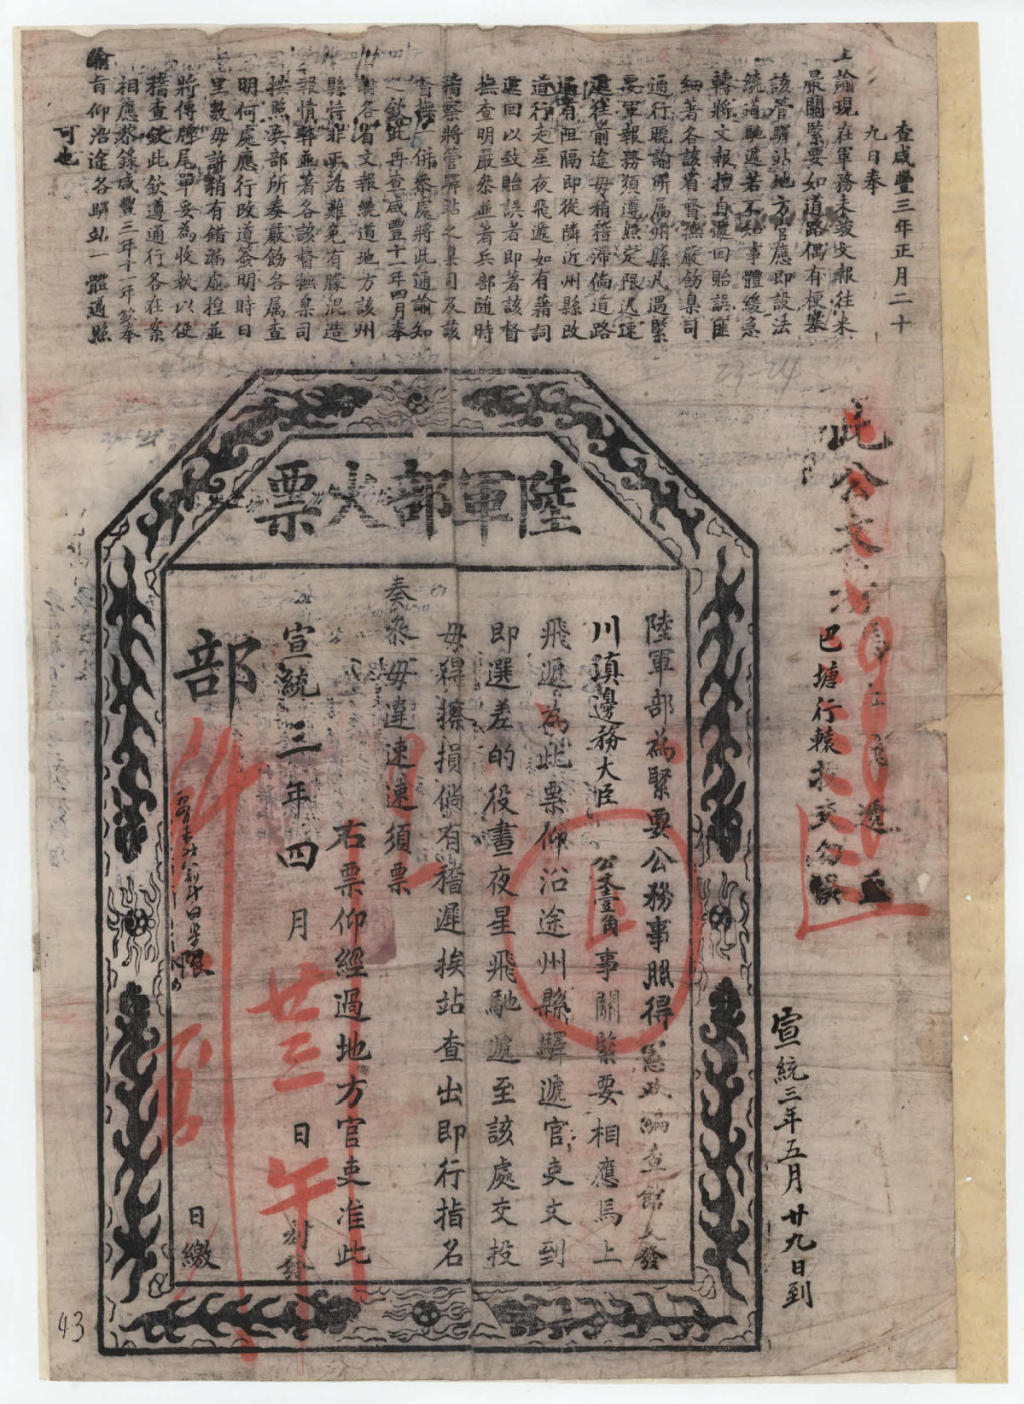 查咸豐三年正月二十
九日奉
上諭現在軍務未竣文報往來
最關緊要如道路偶有梗塞
該管驛站地方官應即設法
繞道馳遞若不知事體緩急
轉將文報擅自遞回貽誤匪
細著各該省督撫嚴飭臬司
通行曉諭所屬州縣凡遇緊
要軍報務須遵照定限迅速
遞往前途毋稍稽滯倘道路
遇有阻隔即從隣近州縣改
道行走星夜飛遞如有藉詞
遞回以致貽誤者即著該督
撫查明嚴叅並著兵部隨時
稽察將管驛站之臬司及該
督撫一併叅處將此通諭知
之欽此再查咸豐十一年四月奉
各省文報繞道地方該州
縣恃非正站難免有朦混造
報情弊並著各該督撫臬司
按照兵部所奏嚴飭各屬查
明何處應行改道簽明時日
里數毋許稍有錯漏虛捏並
將傳牌尾單妥為收執以便
稽查欽此欽遵通行各在案
相應恭錄咸豐三年十一年欽奉
諭旨仰沿途各驛站一體遵照
可也
陸軍部火票
陸軍部為緊要公務事照得憲政編查館文發
川滇邊務大臣公文壹角事關緊要相應馬上
飛遞為此票仰沿途州縣驛遞官吏文到
即選差的役晝夜星飛馳遞至該處交投
毋得擦損倘有稽遲挨站查出即行指名
奏叅毋違速速須票
右票仰經過地方官吏准此
宣統三年四月廿三日午刻發
部
限
日繳
此公文
巴塘行轅投交勿誤
遞
宣統三年五月廿九日到
43